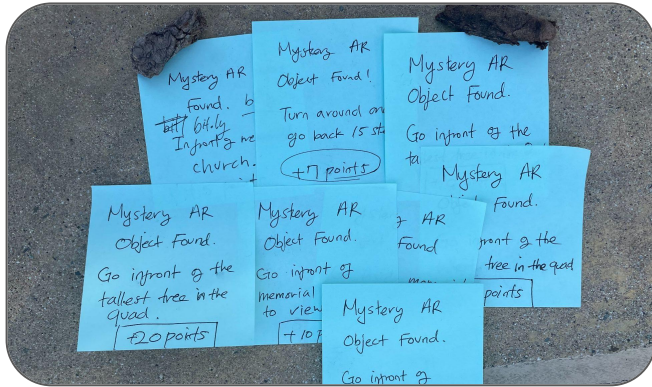 Mystery AR
Found. b
bit.ly
Infront of me
church.
Mystery AR
Object Found!
Turn around an
go back 15 st
+7 points
Mystery AR
Object Found.
Go infront of the
ta
Mystery AR
Found.
front of the
tree in the quad
points
Mystery AR
Object Found.
Go infront of the
tallest tree in the
quad.
+20 points
Mystery AR
Object Found.
Go infront of
memorial
to view
+10 p
AR
Found
Mystery AR
Object Found.
Go infront of